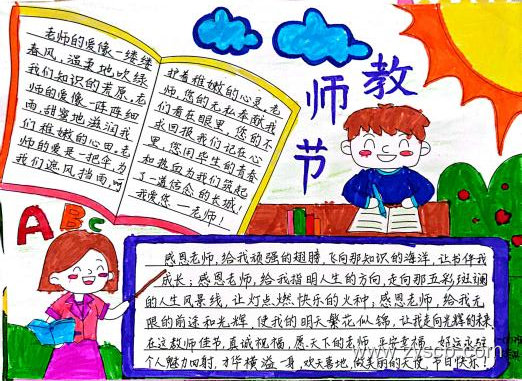 老师的爱像一缕缕
春风,温柔地吹绿
我们知识的荒原,老
师的爱像一阵阵细
雨,甜蜜地滋润我
们稚嫩的心田,老
师的爱是一把伞为
我们遮风挡雨,呵
护着稚嫩的心灵,老
师,您的无私奉献我
们看在眼里,您的不
求回报我们记在心
里,您用毕生的青春
和热血为我们筑起
了一道信念的长城!
我爱您—老师!
教师节
ABC
感恩老师,给我顽强的翅膀,飞向那知识的海洋,让书伴我
成长;感恩老师,给我指明人生的方向,走向那五彩斑斓
的人生风景线,让灯点燃快乐的火种;感恩老师,给我无
限的前途和光辉,使我的明天繁花似锦,让我走向光辉的未来
在这教师佳节,真诚祝福,愿天下的老师,平安幸福,好运永驻
个人魅力四射,才华横溢一身,欢天喜地,做美丽的天使,节日快乐!
www.zyscb.com